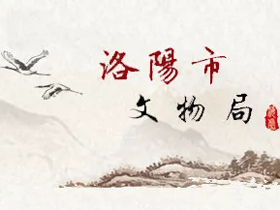 洛陽市
文物局